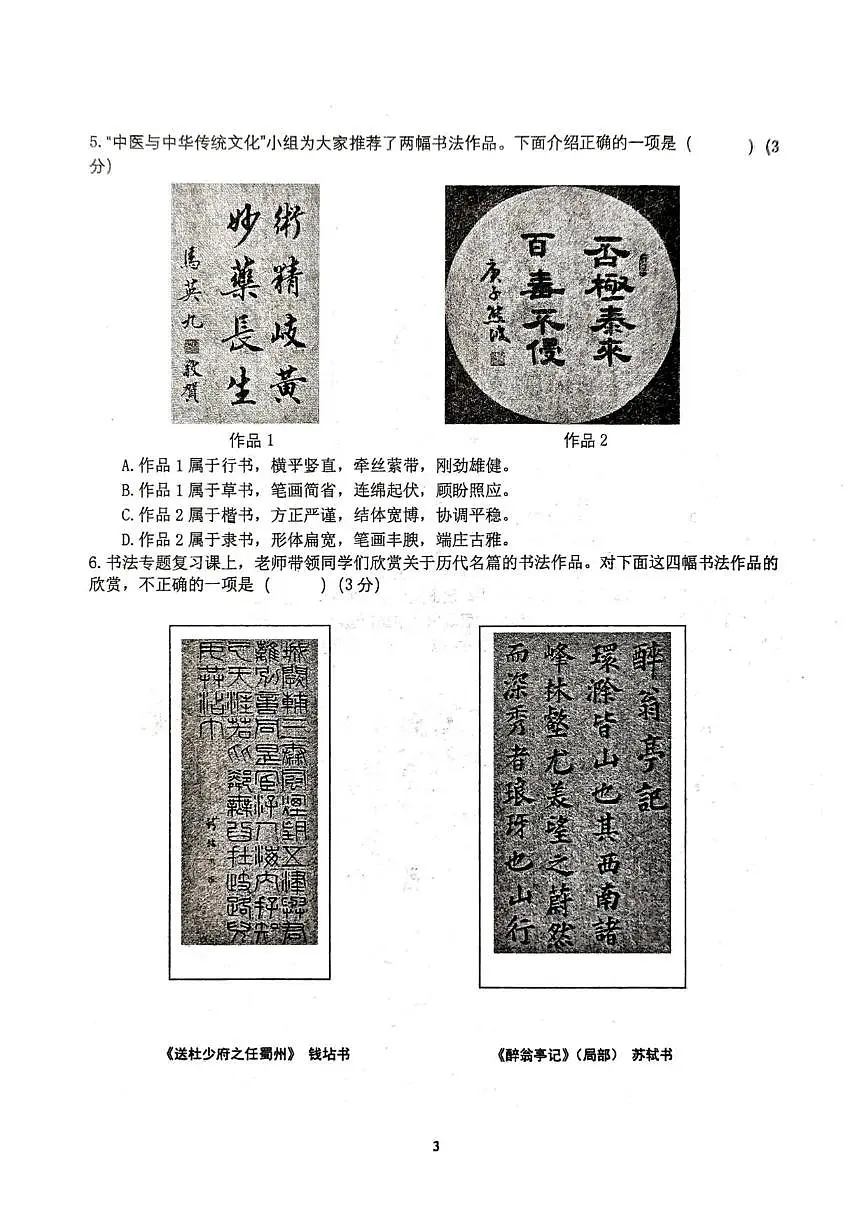 5.“中医与中华传统文化”小组为大家推荐了两幅书法作品。下面介绍正确的一项是（　　）（3
分）
術精岐黃
妙藥長生
馬英九
敬賀
否極泰來
百毒不侵
庚子熊波
作品 1
作品 2
A.作品 1 属于行书，横平竖直，牵丝萦带，刚劲雄健。
B.作品 1 属于草书，笔画简省，连绵起伏，顾盼照应。
C.作品 2 属于楷书，方正严谨，结体宽博，协调平稳。
D.作品 2 属于隶书，形体扁宽，笔画丰腴，端庄古雅。
6.书法专题复习课上，老师带领同学们欣赏关于历代名篇的书法作品。对下面这四幅书法作品的
欣赏，不正确的一项是（　　）（3 分）
城闕輔三秦風煙望五津與君
離別意同是宦游人海内存知
己天涯若比鄰無為在歧路兒
女共沾巾
醉翁亭記
環滁皆山也其西南諸
峰林壑尤美望之蔚然
而深秀者琅玡也山行
《送杜少府之任蜀州》 钱坫书
《醉翁亭记》（局部） 苏轼书
3